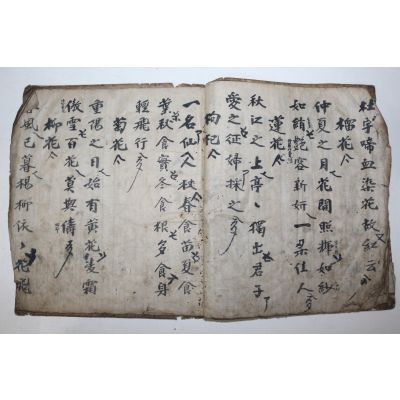 杜宇啼血染花故紅云
榴花
仲夏之月花開照耀如紗
如餙艶容新妍一朶佳人
蓮花
秋江之上亭亭獨出君子
愛之征婦採之
枸杞
一名仙人杖春食苗夏食
葉秋食實冬食根多食身
輕飛行
菊花
重陽之日始有黃花凌霜
傲雪百花莫與儔
柳花
風已暮楊柳依依花飛